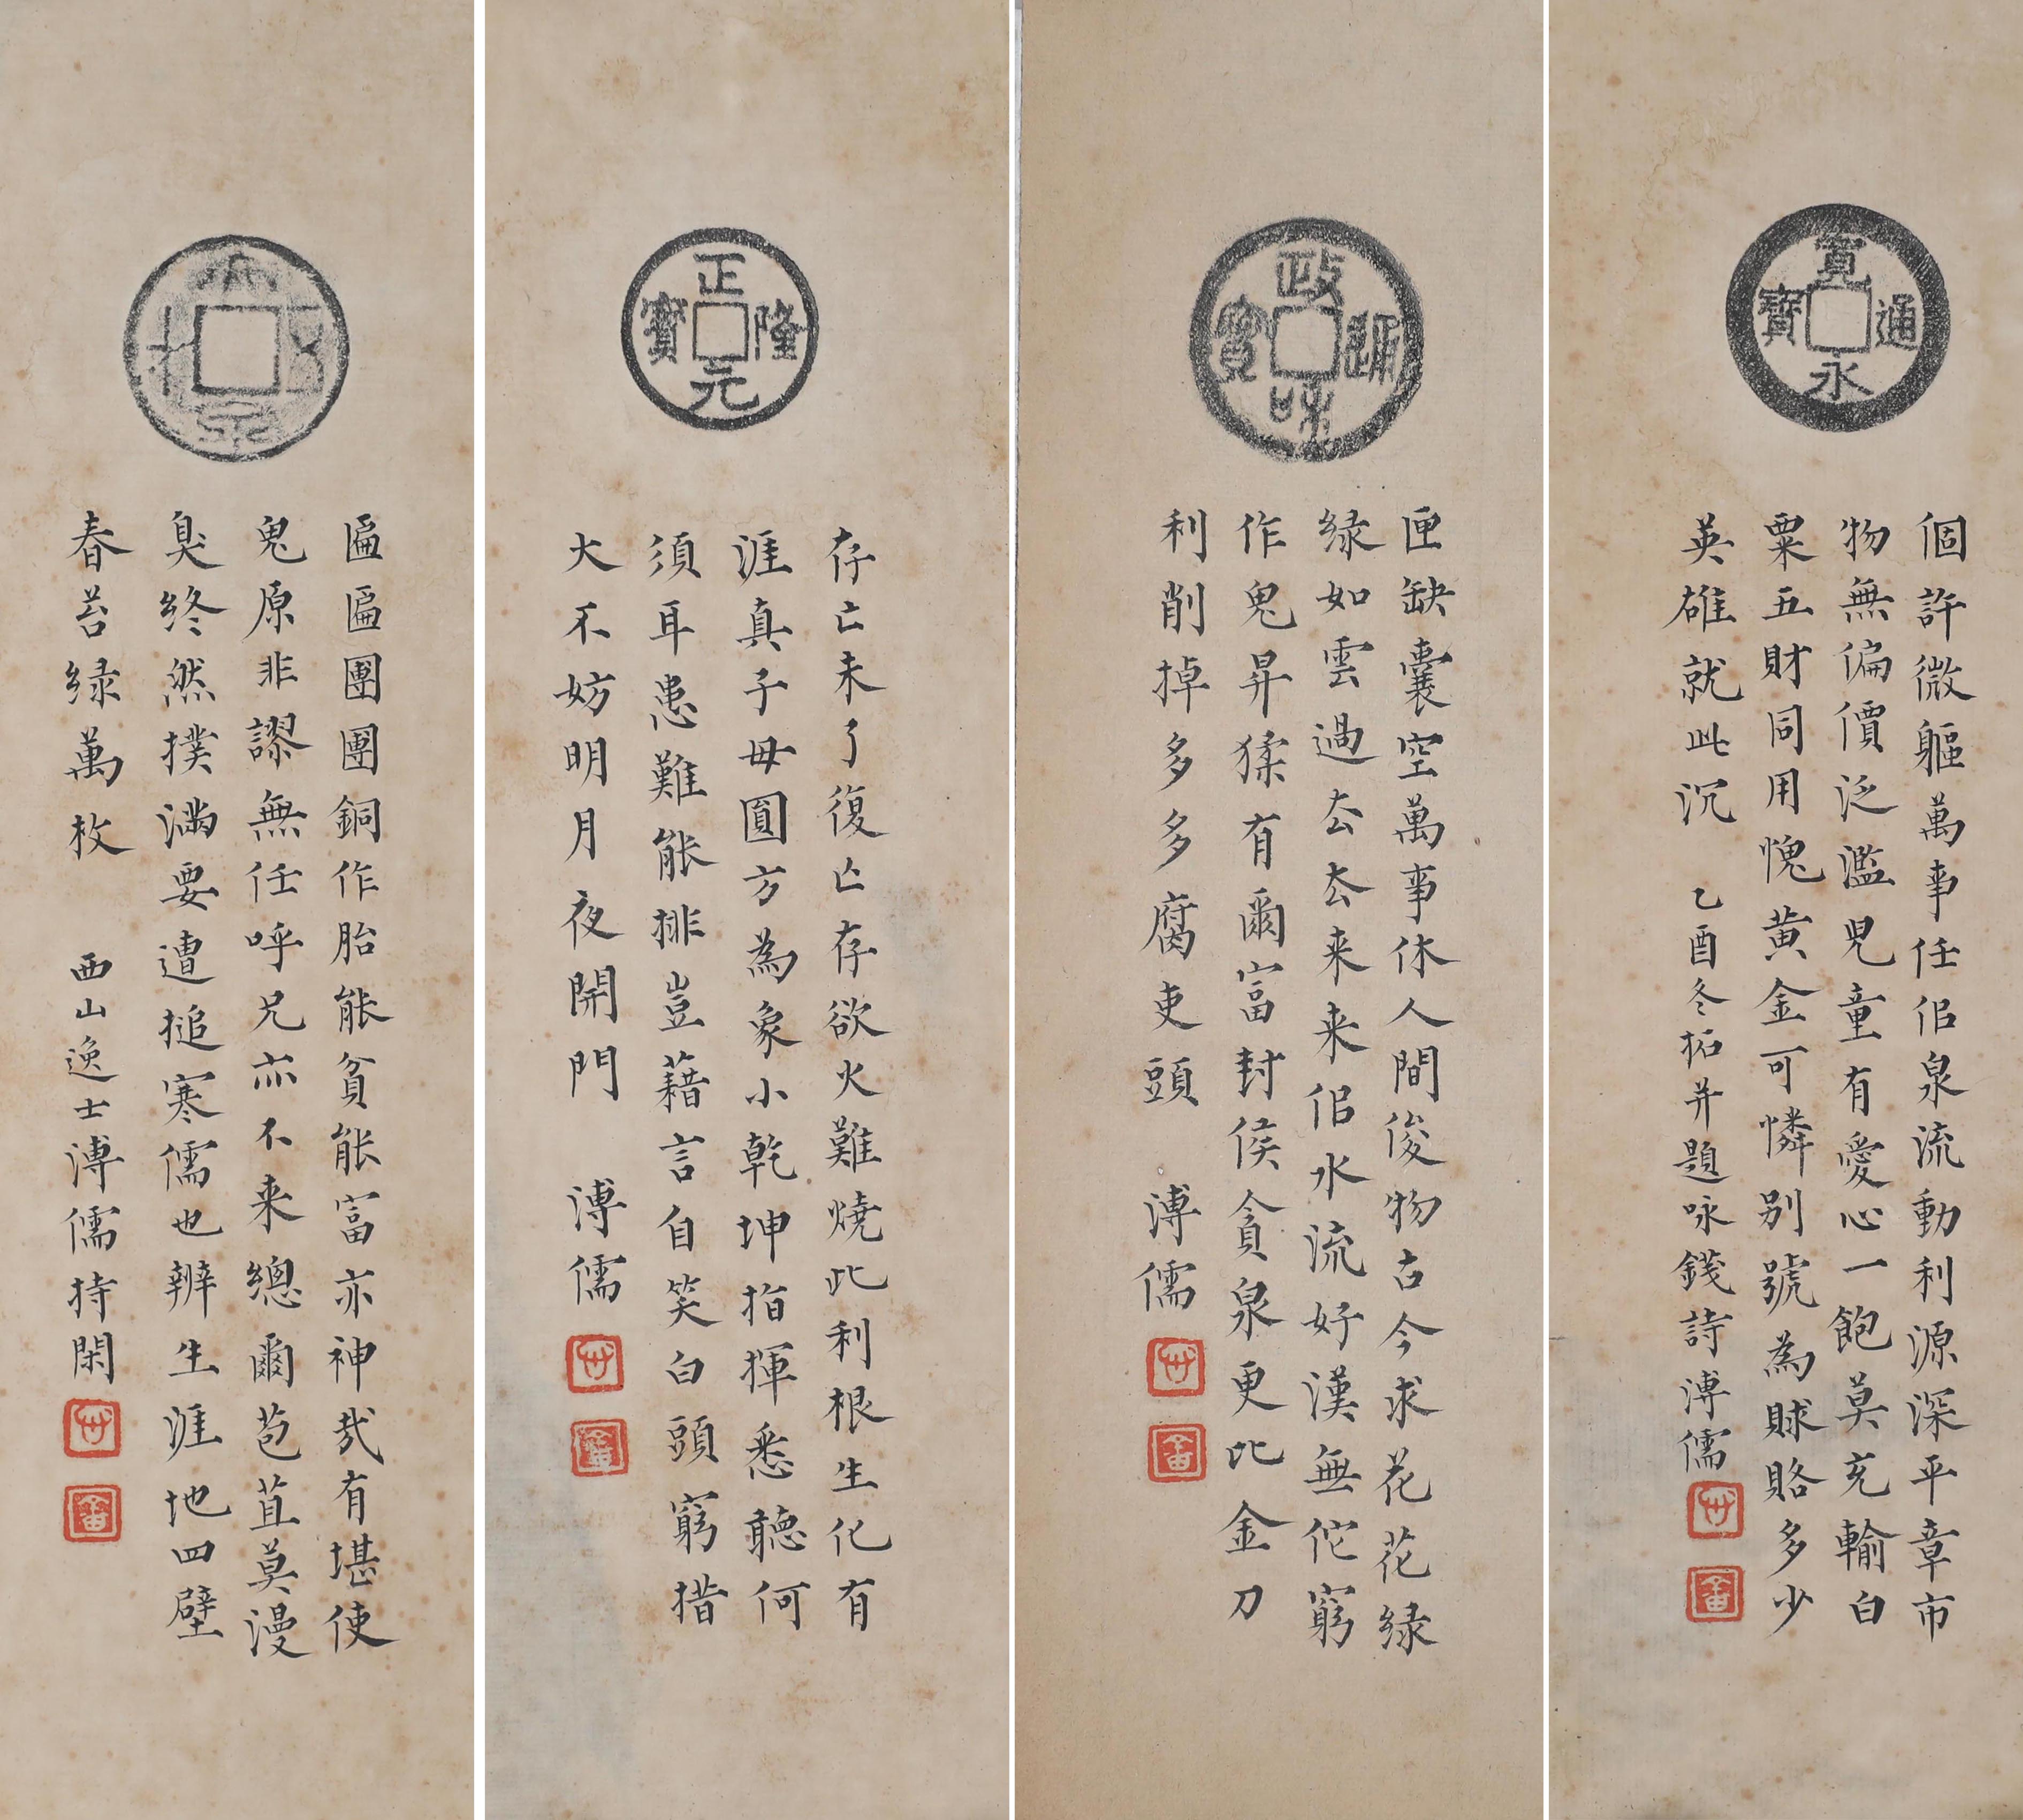 寬永通寶
個許微軀萬事任伯泉流動利源深平章市
物無偏價泛濫兒童有愛心一飽莫充輸白
粟五財同用愧黃金可憐别號為賕賂多少
英雄就此沉 乙酉冬拓并題咏錢詩溥儒
政和通寶
匣缺囊空萬事休人間俊物古今求花花綠
綠如雲過厺厺来来佀水流好漢無佗窮
作鬼昇猱有爾富封侯貪泉更比金刀
利削掉多多腐吏頭 溥儒
正隆元寶
存亡未了復亡存欲火難燒此利根生化有
涯真子毋圓方為象小乾坤指揮悉聽何
須耳患難能排豈藉言自笑白頭窮措
大不妨明月夜開門 溥儒
匾匾團團銅作胎能貧能富亦神哉有堪使
鬼原非謬無任呼兄亦不来總爾苞苴莫漫
臭終然撲滿要遭搥寒儒也辦生涯地四壁
春苔綠萬枚 西山逸士溥儒持閑